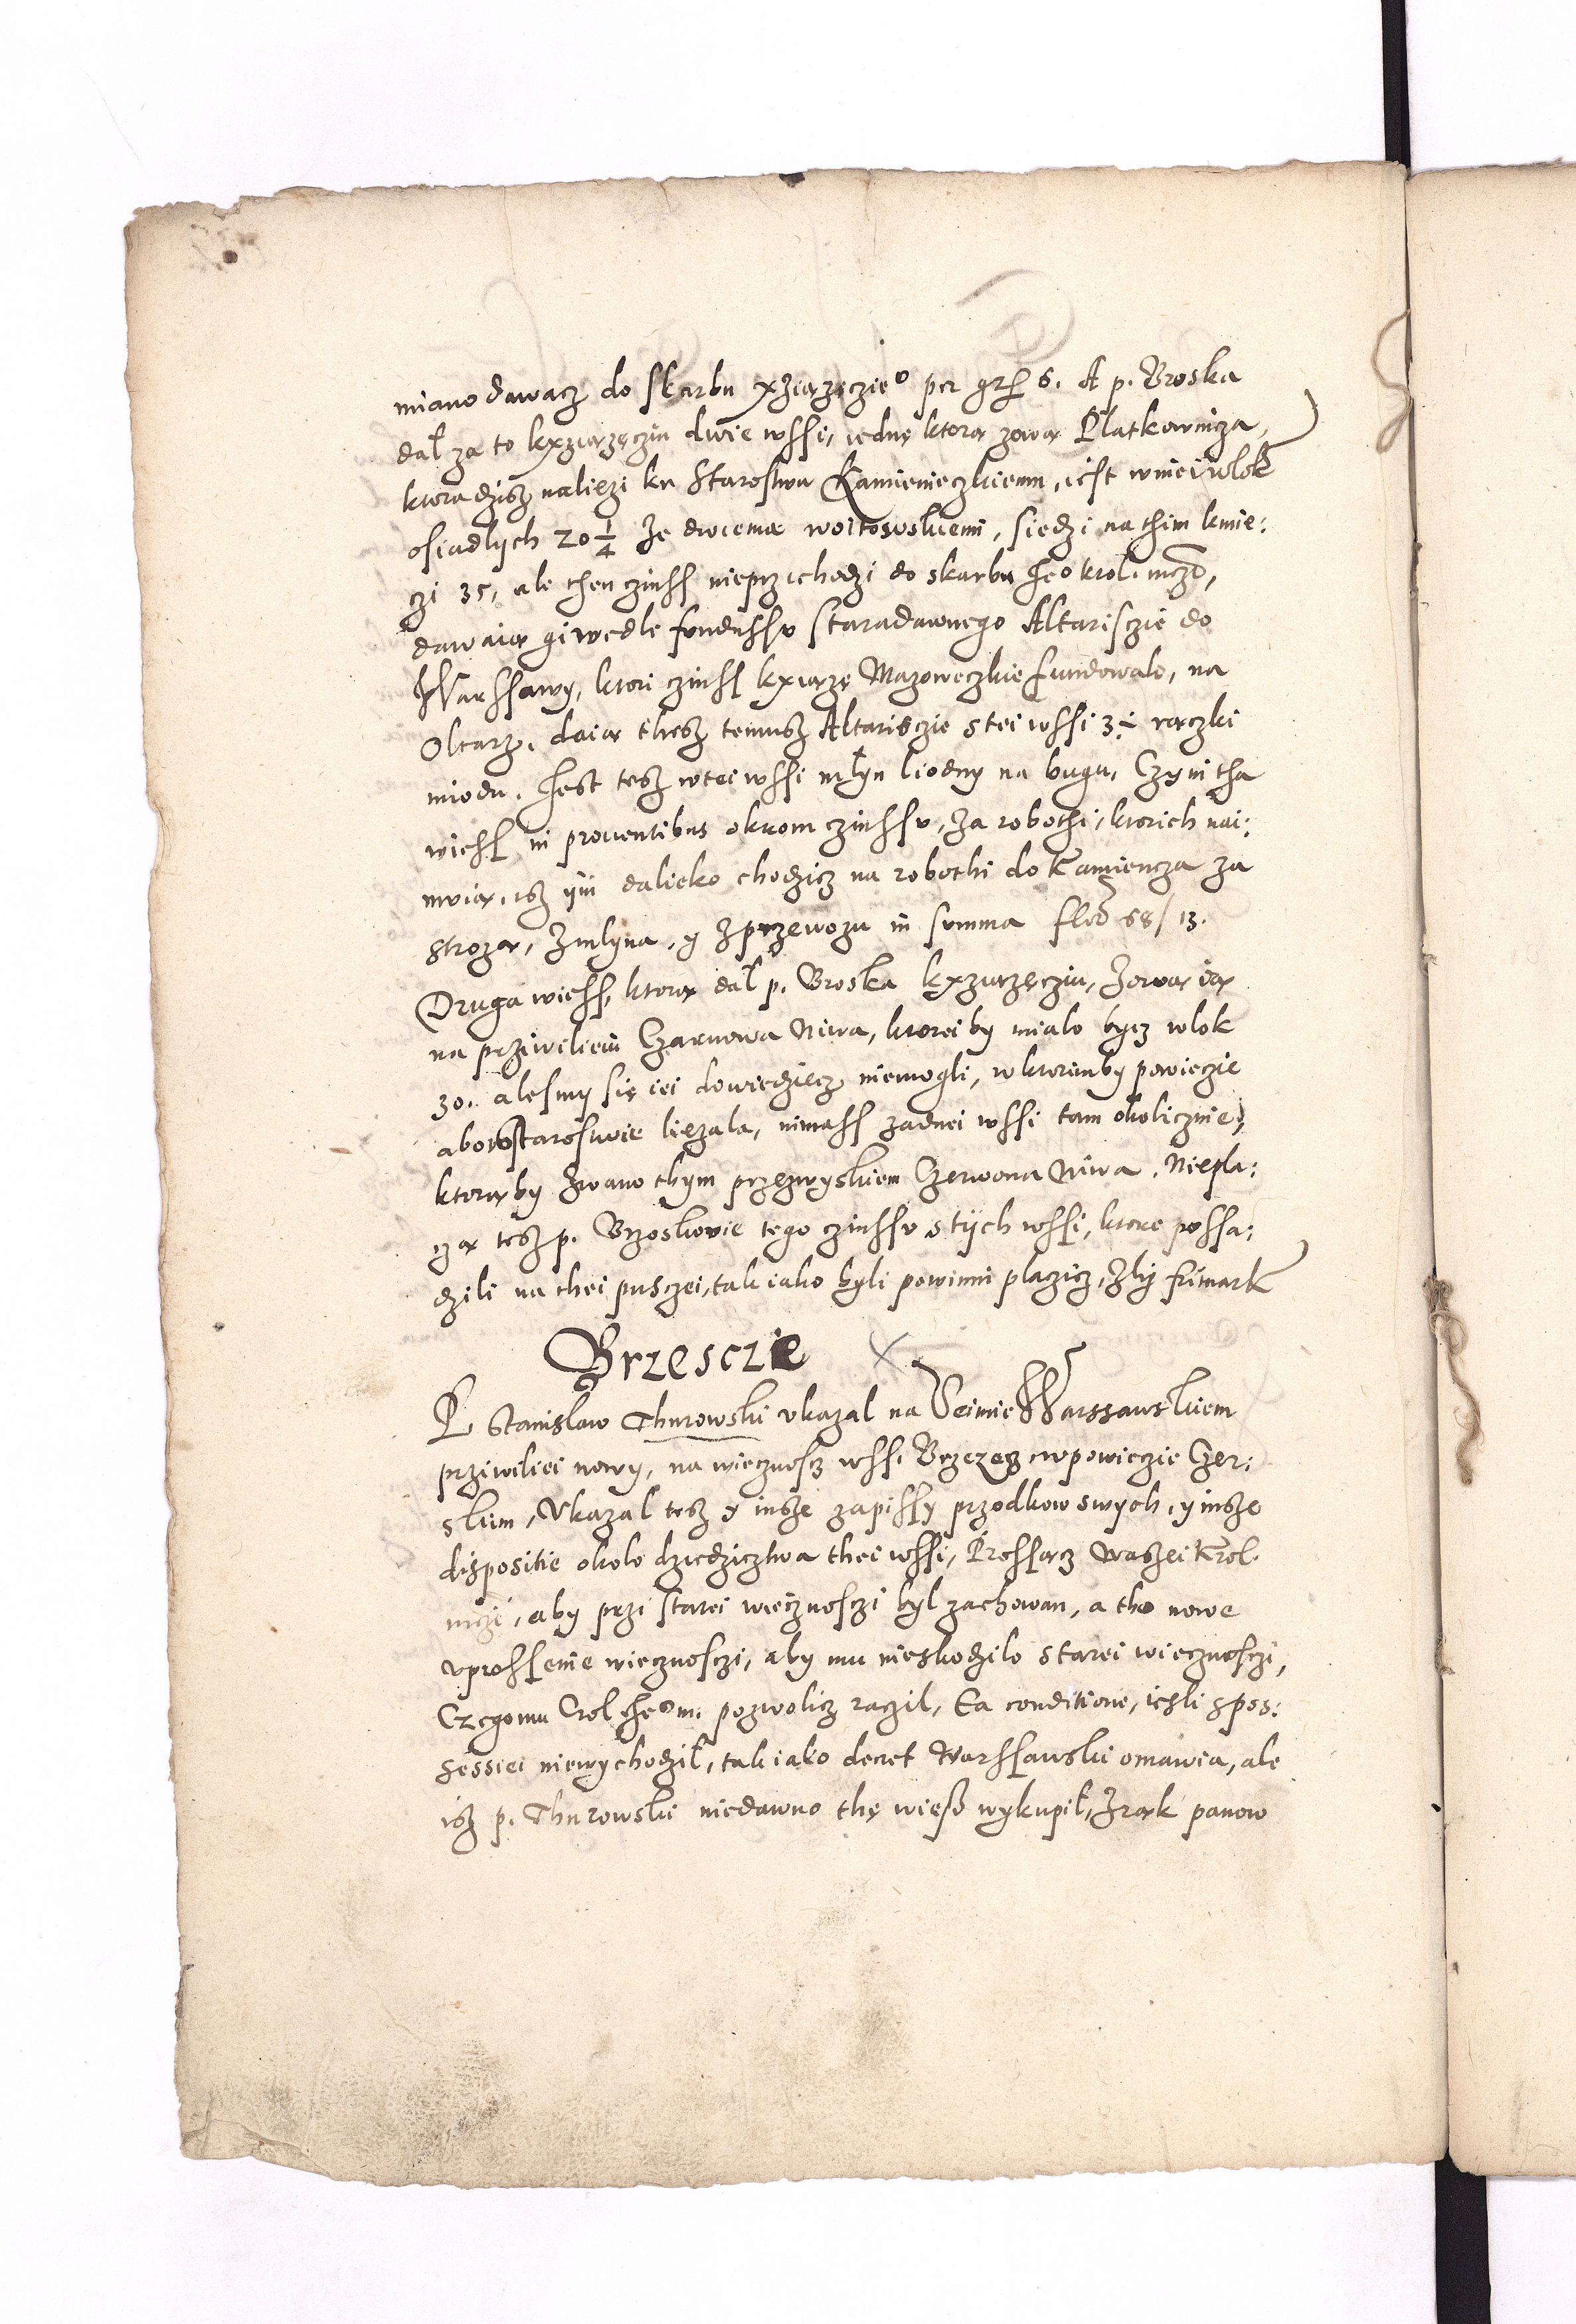 miano dawacz do skarbu xziązęczie° per grʒ 6. A p. Broska
dal za to kxziązęcziu dwie wssi, iednę ktorą zową Platkownicza,
ktora dzisz nalięzi ku Starostwu Kamienieczkiemu, iest w niei wlok
osiadlych 20 1/4 ze dwiema woitowskiemi, siedzi na thim kmie:
czi 35, ale then czinss nieprzichodzi do skarbu Jeo krol. mczi,
dawaią gi wedle fundussu staradawnego Altarisczie do
Warssawy, ktori czinss kxiązę Mazoweczkie fundowalo, na
Oltarz. daią thesz temusz Altarisczie s tei wssi 3 ÷ rączki
miodu. Jest tesz w tei wssi młyn liodny na bugu, Czyni tha
wiess in prouentibus okrom czinssu, za robothi, ktorich nai:
muią, isz ym dalieko chodzicz na robothi do Kamiencza za
strozą, z mlyna, y z przewozu in summa flor 68/13.
Druga wiess, ktorą dał p. Broska kxziązęcziu, zową ią
na przwiliem Czarnowa Niwa, ktorei by mialo bycz wlok
30. alesmy się iei dowiedziecz niemogli, w ktorimby powieczie
abo w starostwie liezala, nimass zadnei wssi tam okolicznie,
ktorąby zwano thym przezwyskiem Czerwona Niwa. Niepla:
czą tesz p. Brzoskowie tego czinssu s tych wssi, ktore possa:
dzili na thei pusczei, tak iako byli powinni placzicz, Zly frimark
Brzesczie
P. Stanislaw Thurowski ukazal na Seimie Warssawskiem
przwiliei nowy, na wiecznoscz wssi Brzezecz w powieczie Czer:
skim, Ukazal tesz y insze zapissy przodkow swych, y insze
dispositie okolo dziedzicztwa thei wssi, Prossącz Waszei Krol.
mczi, aby przi starei wiecznosczi byl zachowan, a tho nowe
uprossenie wiecznosczi, aby mu nieskodzilo starei wiecznosczi,
Czegomu Crol Jeo m. pozwolicz raczil, Ea conditione, iesli s pos:
sessiei niewychodził, tak iako decret Warssawski omawia, ale
isz p. Thurowski niedawno thę wieß wykupił, z rąk panow